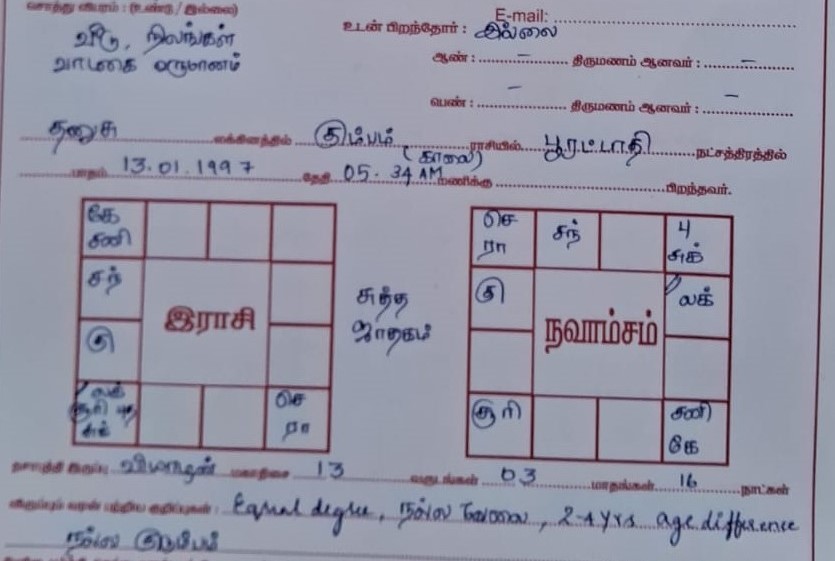 சொத்து விபரம் : (உண்டு / இல்லை)
E-mail:
வீடு, நிலங்கள்
உடன் பிறந்தோர் : இல்லை
வாடகை வருமானம்
ஆண் : – திருமணம் ஆனவர் : –
பெண் : – திருமணம் ஆனவர் : –
தனுசு லக்கினத்தில் கும்பம் ராசியில் பூரட்டாதி நட்சத்திரத்தில்
பாதம் 13.01.1997 தேதி 05.34 AM (காலை) மணிக்கு பிறந்தவர்.
கே
சனி
சந்
குரு
இராசி
லக்
சூரி புத
சுக்
செ
ரா
சுத்த
ஜாதகம்
செ
ரா
சந்
பு
சுக்
கு
லக்
நவாம்சம்
சூரி
சனி
கே
மகாதிசை 13 வருடங்கள் 03 மாதங்கள் 16 நாட்கள்
விரும்பும் வரன் பற்றிய குறிப்புகள் : Equal degree, நல்ல வேலை, 2-4 yrs age difference
நல்ல குடும்பம்